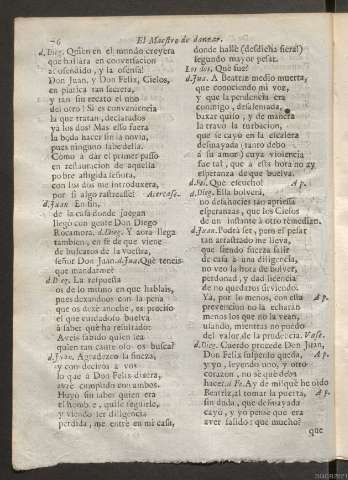 26 El Maestro de danzar.
d. Dieg. Quien en el mundo creyera
que hallara en conversacion
al ofendido, y la ofensa!
Don Juan, y Don Felix, Cielos,
en platica tan secreta,
y tan sin recato el uno
del otro! Si es conveniencia
la que tratan, declarados
ya los dos? Mas esso fuera
la boda hacer sin la novia,
pues ninguno habe della.
Como á dar el primer passo
en restauracion de aquella
pobre afligida señora,
con los dos me introduxera,
por si algo rastreasse? Acercase.
d. Juan. En fin,
de la casa donde juegan
llegó con gente Don Diego
Rocamora. d. Dieg. Y aora llega
tambien, en fé de que viene
de buscaros de la vuestra,
señor Don Juan. d. Jua. Què teneis
que mandarme?
d. Dieg. La respuesta
os de lo mismo en que hablais,
pues dexandoos con la pena
que os dexè anoche, es preciso
el que cuidadoso buelva
à saber què ha resultado:
Aveis sabido quien sea
quien tan cauteloso os busca?
d. Juan. Agradezco la fineza,
y con deciros à vos
lo que à Don Felix dixera,
avrè cumplido con ambos.
Huyò sin saber quien era
el hombre, quise seguirle,
y viendo ser diligencia
perdida, me entrè en mi casa,
donde hallè (desdicha fiera!)
segundo mayor pesar.
Los dos. Què fue?
d. Jua. A Beatriz medio muerta,
que conociendo mi voz,
y que la pendencia era
conmigo, desalentada,
baxar quiso, y de manera
la travò la turbacion,
que se cayò en la escalera
desmayada (tanto debo
à su amor) cuya violencia
fue tal, que à esta hora no ay
esperanza de que buelva.
d. Fel. Què escucho! A p.
d. Dieg. Ella bolverà,
no desahucies tan aprisa
esperanzas, que los Cielos
de un instante à otro remedian.
d. Juan. Podrà ser, pero el pesar
tan arrastrado me lleva,
que siendo fuerza salir
de casa à una diligencia,
no veo la hora de bolver,
perdonad, y dad licencia
de no quedaros sirviendo.
Yà, por lo menos, con esta A p.
prevencion no la echaràn
menos los que no la vean,
usando, mientras no puedo
del valor de la prudencia. Vase.
d. Dieg. Cuerdo procede Don Juan,
Don Felix suspenso queda, A p.
y yo, leyendo uno, y otro
corazon, no sè què debo
hacer. d. Fe. Ay de mi! què he oido A p.
Beatriz, al tomar la puerta,
sin duda, que desmayada
cayò, y yo pensè que era
aver salido: què mucho?
que